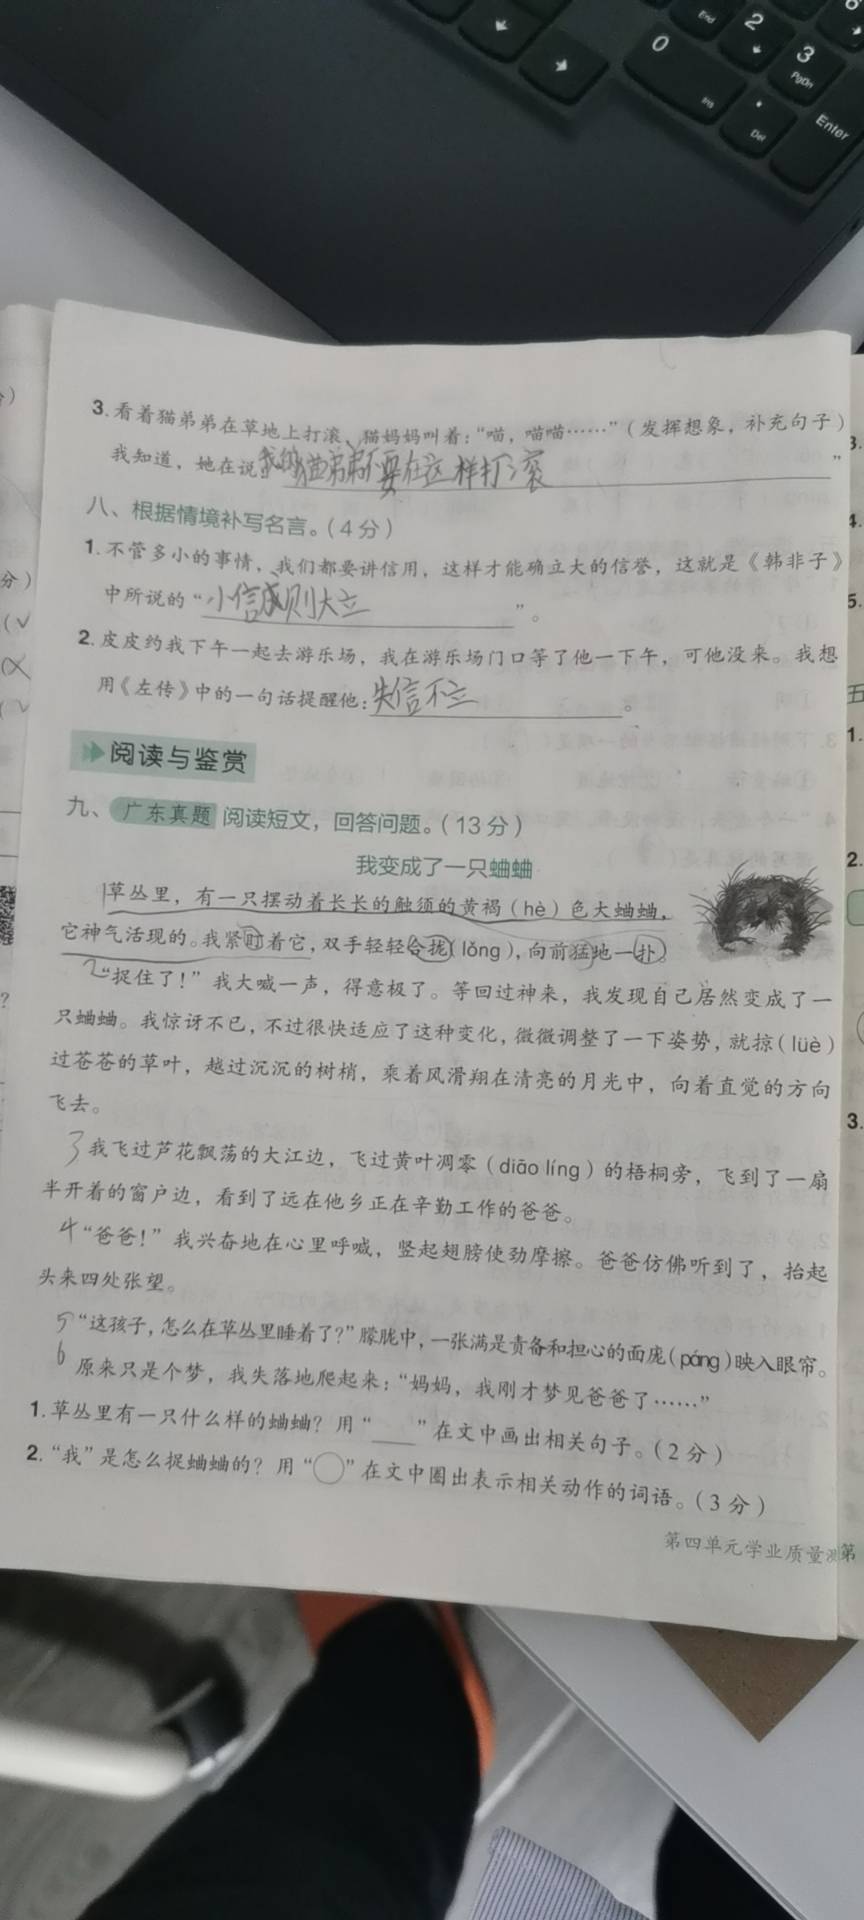 End
2
3
PgDn
0
Ins
Del
Enter
3.看着猫弟弟在草地上打滚，猫妈妈叫着：“喵，喵喵……”（发挥想象，补充句子）
我知道，她在说 猫弟弟不要在这样打滚”
八、根据情境补写名言。（4分）
1.不管多小的事情，我们都要讲信用，这样才能确立大的信誉，这就是《韩非子》
中所说的“小信成则大立”。
2.皮皮约我下午一起去游乐场，我在游乐场门口等了他一下午，可他没来。我想
用《左传》中的一句话提醒他：失信不立。
阅读与鉴赏
九、广东真题 阅读短文，回答问题。（13分）
我变成了一只蛐蛐
1草丛里，有一只摆动着长长的触须的黄褐（hè）色大蛐蛐，
它神气活现的。我紧盯着它，双手轻轻合拢（lǒng），向前猛地一扑。
2“捉住了！”我大喊一声，得意极了。等回过神来，我发现自己居然变成了一
只蛐蛐。我惊讶不已，不过很快适应了这种变化，微微调整了一下姿势，就掠（lüè）
过苍苍的草叶，越过沉沉的树梢，乘着风滑翔在清亮的月光中，向着直觉的方向
飞去。
3我飞过芦花飘荡的大江边，飞过黄叶凋零（diāo líng）的梧桐旁，飞到了一扇
半开着的窗户边，看到了远在他乡正在辛勤工作的爸爸。
4“爸爸！”我兴奋地在心里呼喊，竖起翅膀使劲摩擦。爸爸仿佛听到了，抬起
头来四处张望。
5“这孩子，怎么在草丛里睡着了？”朦胧中，一张满是责备和担心的面庞（páng）映入眼帘。
6原来只是个梦，我失落地爬起来：“妈妈，我刚才梦见爸爸了……”
1.草丛里有一只什么样的蛐蛐？用“____”在文中画出相关句子。（2分）
2.“我”是怎么捉蛐蛐的？用“○”在文中圈出表示相关动作的词语。（3分）
第四单元学业质量